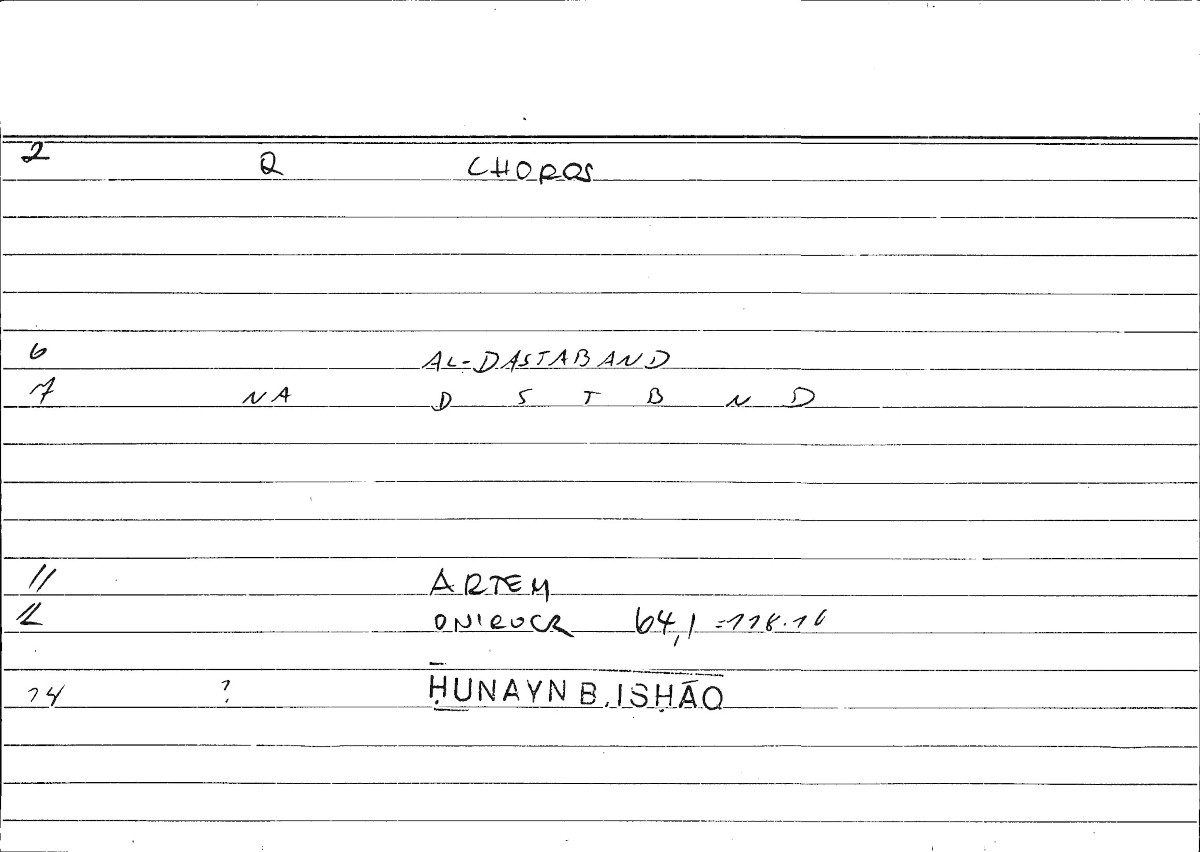 2 Q CHOROS
6 AL-DASTABAND
7 NA D S T B N D
11 ARTEM
12 ONIROCR 64,1 =118.16
14 ? ḤUNAYN B. ISḤĀQ